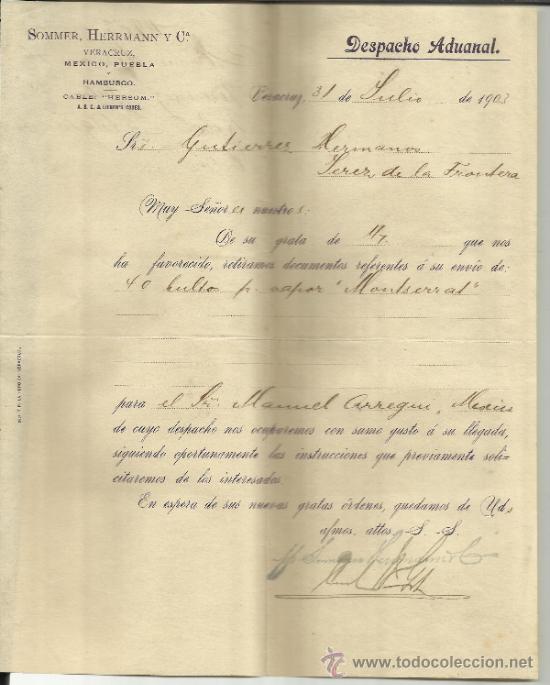 SOMMER, HERRMANN Y Cª
VERACRUZ,
MEXICO, PUEBLA
Y
HAMBURGO.
CABLE: "HERSOM."
A. B. C. & LIEBER'S CODES.
Despacho Aduanal.
Veracruz, 31 de Julio de 1903
Srs. Gutierrez Hermanos
Jerez de la Frontera
Muy Señores nuestros:
De su grata de que nos
ha favorecido, retiramos documentos referentes á su envio de:
40 bultos p. vapor "Montserrat"
para el Sr. Manuel Arregui, Mexico
de cuyo despacho nos ocuparemos con sumo gusto á su llegada,
siguiendo oportunamente las instrucciones que previamente soli-
citaremos de los interesados.
En espera de sus nuevas gratas órdenes, quedamos de Uds
afmos. attos. S. S.
Sommer Herrmann y Cia
www.todocoleccion.net